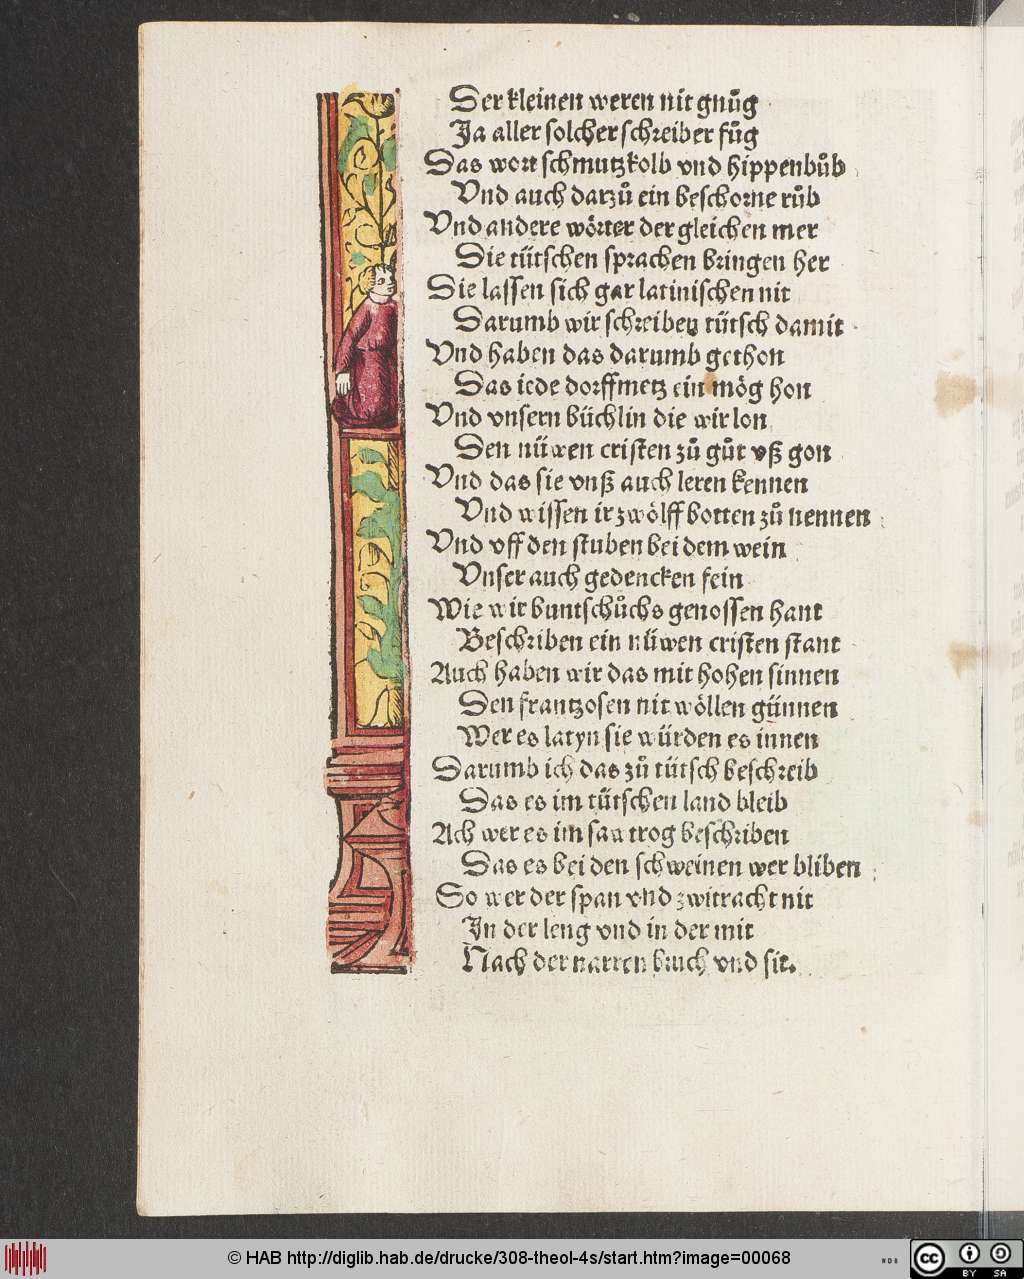 Der kleinen weren nit gnůg
Ja aller solcher schreiber fůg
Das wort schmutzkolb vnd hippenbůb
Vnd auch darzů ein beschorne růb
Vnd andere wörter der gleichen mer
Die tütschen sprachen bringen her
Die lassen sich gar latinischen nit
Darumb wir schreiben tütsch damit
Vnd haben das darumb gethon
Das iede dorffmetz ein mög hon
Vnd vnsern büchlin die wir lon
Den nüwen cristen zů gůt vß gon
Vnd das sie vnß auch leren kennen
Vnd wissen ir zwölff botten zů nennen
Vnd vff den stuben bei dem wein
Vnser auch gedencken fein
Wie wir buntschůchs genossen hant
Beschriben ein nüwen cristen stant
Auch haben wir das mit hohen sinnen
Den frantzosen nit wöllen günnen
Wer es latyn sie würden es innen
Darumb ich das zů tütsch beschreib
Das es im tütschen land bleib
Ach wer es im saw trog beschriben
Das es bei den schweinen wer bliben
So wer der span vnd zwitracht nit
In der leng vnd in der mit
Nach der narren bruch vnd sit.
© HAB http://diglib.hab.de/drucke/308-theol-4s/start.htm?image=00068
WDB
cc BY SA